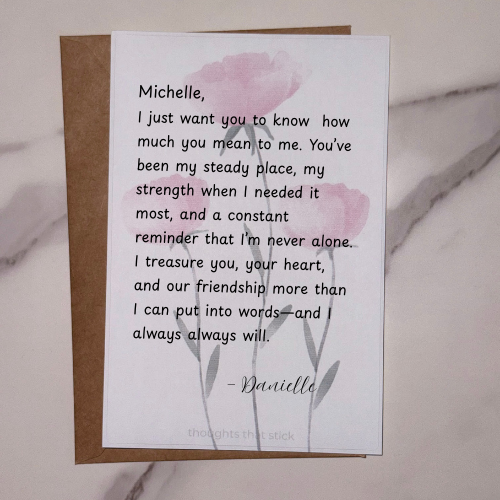 Michelle,
I just want you to know how
much you mean to me. You've
been my steady place, my
strength when I needed it
most, and a constant
reminder that I'm never alone.
I treasure you, your heart,
and our friendship more than
I can put into words—and I
always always will.
- Danielle
thoughts that stick